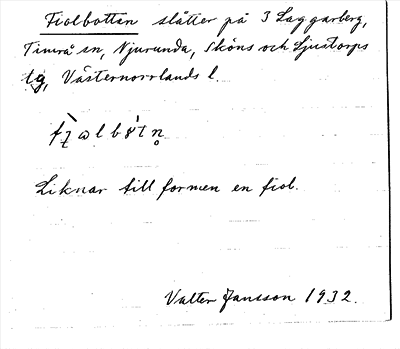 Fiolbotten slåtter på 3 Laggarberg,
Timrå sn, Njurunda, Sköns och Ljustorps
tg, Västernorrlands l.
Liknar till formen en fiol.
Valter Jansson 1932.